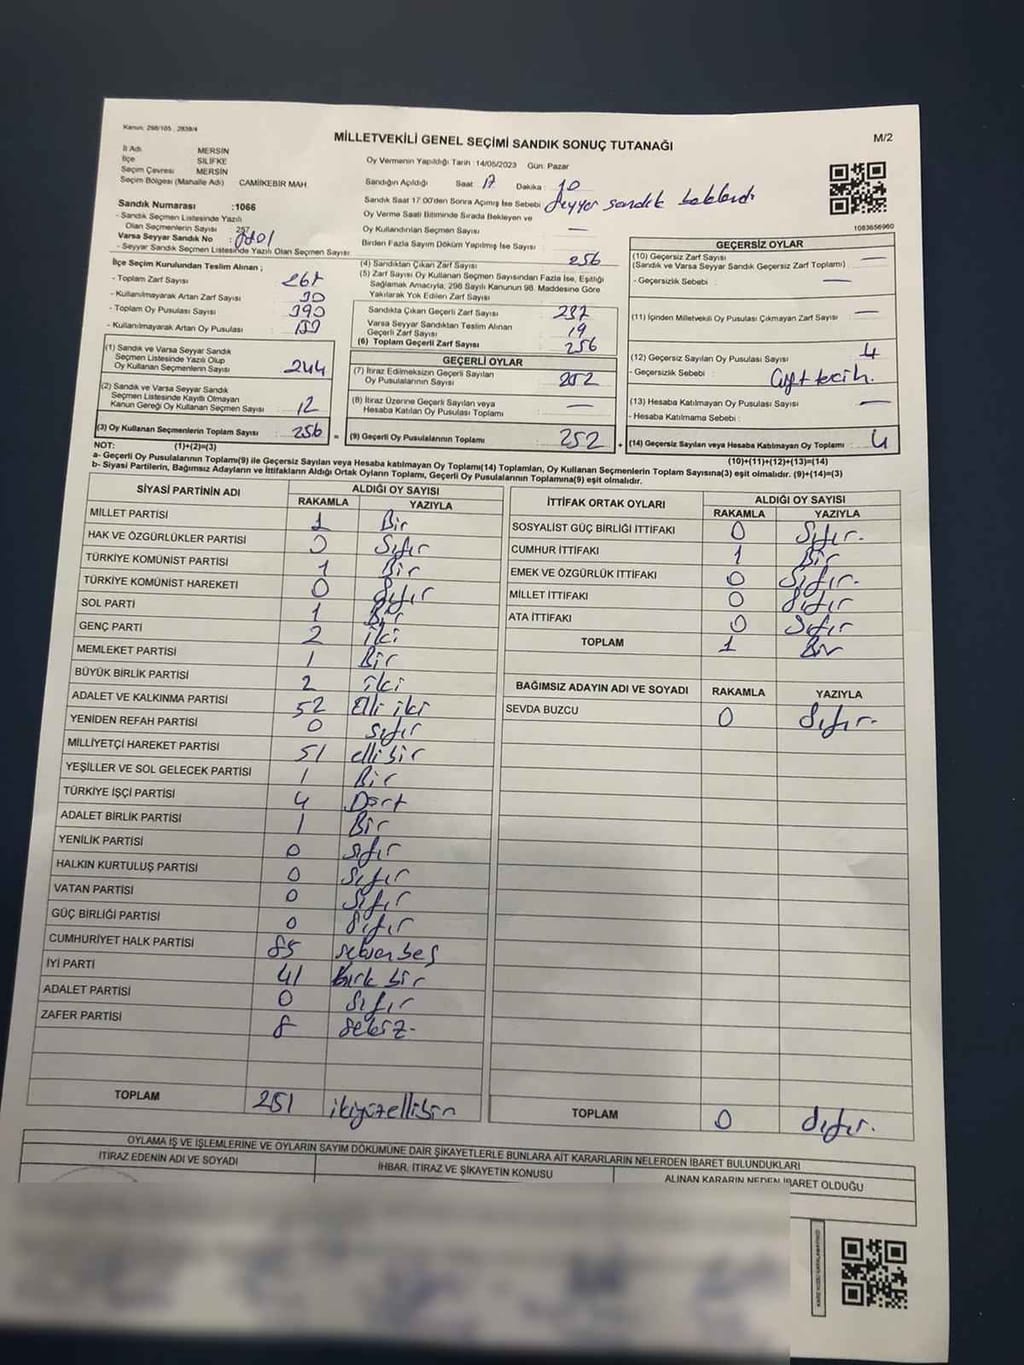 Kanun: 298/105 , 2839/4
MİLLETVEKİLİ GENEL SEÇİMİ SANDIK SONUÇ TUTANAĞI
M/2
İl Adı MERSİN
İlçe SİLİFKE
Seçim Çevresi MERSİN
Seçim Bölgesi (Mahalle Adı) CAMİİKEBİR MAH.
Oy Vermenin Yapıldığı Tarih : 14/05/2023 Gün: Pazar
Sandığın Açıldığı Saat : 17 Dakika : 10
Sandık Saat 17.00'den Sonra Açılmış İse Sebebi : Seyyar sandık beklendi
Oy Verme Saati Bitiminde Sırada Bekleyen ve
Oy Kullandırılan Seçmen Sayısı : —
Birden Fazla Sayım Döküm Yapılmış İse Sayısı :
1083656960
Sandık Numarası :1066
- Sandık Seçmen Listesinde Yazılı
Olan Seçmenlerin Sayısı : 257
Varsa Seyyar Sandık No :
- Seyyar Sandık Seçmen Listesinde Yazılı Olan Seçmen Sayısı:
İlçe Seçim Kurulundan Teslim Alınan ;
- Toplam Zarf Sayısı
- Kullanılmayarak Artan Zarf Sayısı
- Toplam Oy Pusulası Sayısı 390
- Kullanılmayarak Artan Oy Pusulası
(1) Sandık ve Varsa Seyyar Sandık
Seçmen Listesinde Yazılı Olup
Oy Kullanan Seçmenlerin Sayısı 244
(2) Sandık ve Varsa Seyyar Sandık
Seçmen Listesinde Kayıtlı Olmayan
Kanun Gereği Oy Kullanan Seçmen Sayısı 12
(3) Oy Kullanan Seçmenlerin Toplam Sayısı 256 =
(1)+(2)=(3)
(4) Sandıktan Çıkan Zarf Sayısı 256
(5) Zarf Sayısı Oy Kullanan Seçmen Sayısından Fazla İse, Eşitliği
Sağlamak Amacıyla, 298 Sayılı Kanunun 98. Maddesine Göre
Yakılarak Yok Edilen Zarf Sayısı
Sandıkta Çıkan Geçerli Zarf Sayısı 237
Varsa Seyyar Sandıktan Teslim Alınan
Geçerli Zarf Sayısı 19
(6) Toplam Geçerli Zarf Sayısı 256
GEÇERLİ OYLAR
(7) İtiraz Edilmeksizin Geçerli Sayılan
Oy Pusulalarının Sayısı 252
(8) İtiraz Üzerine Geçerli Sayılan veya
Hesaba Katılan Oy Pusulası Toplamı —
(9) Geçerli Oy Pusulalarının Toplamı 252 +
GEÇERSİZ OYLAR
(10) Geçersiz Zarf Sayısı
(Sandık ve Varsa Seyyar Sandık Geçersiz Zarf Toplamı) —
- Geçersizlik Sebebi : —
(11) İçinden Milletvekili Oy Pusulası Çıkmayan Zarf Sayısı —
(12) Geçersiz Sayılan Oy Pusulası Sayısı 4
- Geçersizlik Sebebi : Çift tercih.
(13) Hesaba Katılmayan Oy Pusulası Sayısı —
- Hesaba Katılmama Sebebi :
(14) Geçersiz Sayılan veya Hesaba Katılmayan Oy Toplamı 4
(10)+(11)+(12)+(13)=(14)
NOT:
a- Geçerli Oy Pusulalarının Toplamı(9) ile Geçersiz Sayılan veya Hesaba katılmayan Oy Toplamı(14) Toplamları, Oy Kullanan Seçmenlerin Toplam Sayısına(3) eşit olmalıdır. (9)+(14)=(3)
b- Siyasi Partilerin, Bağımsız Adayların ve İttifakların Aldığı Ortak Oyların Toplamı, Geçerli Oy Pusulalarının Toplamına(9) eşit olmalıdır.
SİYASİ PARTİNİN ADI ALDIĞI OY SAYISI
RAKAMLA YAZIYLA
MİLLET PARTİSİ 1 Bir
HAK VE ÖZGÜRLÜKLER PARTİSİ 0 Sıfır
TÜRKİYE KOMÜNİST PARTİSİ 1 Bir
TÜRKİYE KOMÜNİST HAREKETİ 0 Sıfır
SOL PARTİ 1 Bir
GENÇ PARTİ 2 iki
MEMLEKET PARTİSİ 1 Bir
BÜYÜK BİRLİK PARTİSİ 2 iki
ADALET VE KALKINMA PARTİSİ 52 Elli iki
YENİDEN REFAH PARTİSİ 0 sıfır
MİLLİYETÇİ HAREKET PARTİSİ 51 elli bir
YEŞİLLER VE SOL GELECEK PARTİSİ 1 Bir
TÜRKİYE İŞÇİ PARTİSİ 4 Dört
ADALET BİRLİK PARTİSİ 1 Bir
YENİLİK PARTİSİ 0 sıfır
HALKIN KURTULUŞ PARTİSİ 0 Sıfır
VATAN PARTİSİ 0 Sıfır
GÜÇ BİRLİĞİ PARTİSİ 0 Sıfır
CUMHURİYET HALK PARTİSİ 85 seksen beş
İYİ PARTİ 41 kırk bir
ADALET PARTİSİ 0 Sıfır
ZAFER PARTİSİ 8 Sekiz-
TOPLAM 251 ikiyüzellibir
İTTİFAK ORTAK OYLARI ALDIĞI OY SAYISI
RAKAMLA YAZIYLA
SOSYALİST GÜÇ BİRLİĞİ İTTİFAKI 0 Sıfır-
CUMHUR İTTİFAKI 1 Bir
EMEK VE ÖZGÜRLÜK İTTİFAKI 0 Sıfır-
MİLLET İTTİFAKI 0 Sıfır
ATA İTTİFAKI 0 Sıfır
TOPLAM 1 Bir
BAĞIMSIZ ADAYIN ADI VE SOYADI RAKAMLA YAZIYLA
SEVDA BUZCU 0 Sıfır-
TOPLAM 0 Sıfır.
OYLAMA İŞ VE İŞLEMLERİNE VE OYLARIN SAYIM DÖKÜMÜNE DAİR ŞİKAYETLERLE BUNLARA AİT KARARLARIN NELERDEN İBARET BULUNDUKLARI
İTİRAZ EDENİN ADI VE SOYADI İHBAR, İTİRAZ VE ŞİKAYETİN KONUSU ALINAN KARARIN NEDEN İBARET OLDUĞU